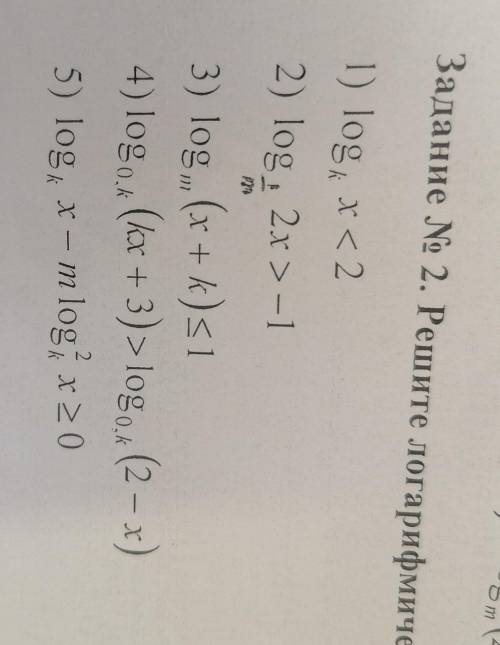 Задание № 2. Решите логарифмиче
1) logₖ x < 2
2) log 2x > −1
3) logₘ (x + k) ≤ 1
4) log₀,ₖ (kx + 3) > log₀,ₖ (2 − x)
5) logₖ x − m log²ₖ x ≥ 0